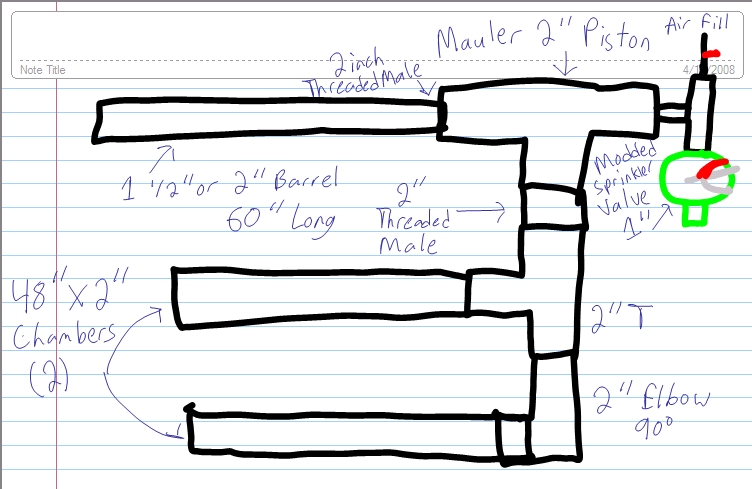 Air Fill
Mauler 2" Piston
2 inch
Threaded Male
Note Title
4/1 /2008
1 1/2" or 2" Barrel
60" Long
2"
Threaded
Male
Modded
Sprinkler
Valve
1"
48" X 2"
Chambers
(2)
2" T
2" Elbow
90°